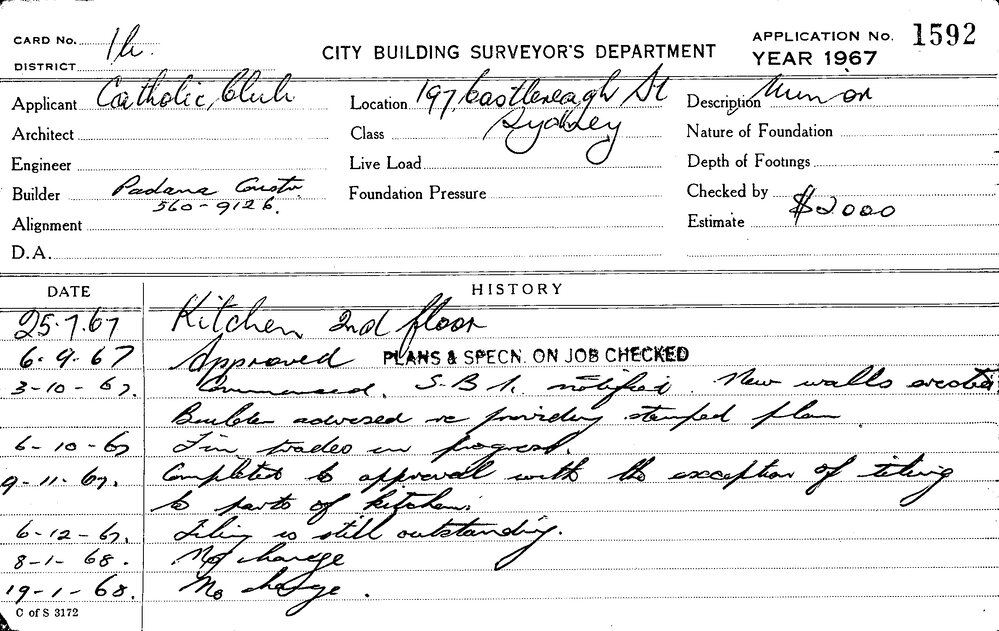 CARD No. 1h.
CITY BUILDING SURVEYOR'S DEPARTMENT
APPLICATION No. 1592
DISTRICT
YEAR 1967
Applicant Catholic Club
Location 197 Castlereagh St
Sydney
Description Minor
Architect
Class
Nature of Foundation
Engineer
Live Load
Depth of Footings
Builder Padana Constr
560-9126.
Foundation Pressure
Checked by
Estimate $2000
Alignment
D.A.
DATE HISTORY
25.7.67 Kitchen 2nd floor
6-9.67 Approved PLANS & SPECN. ON JOB CHECKED
3-10-67. Commenced. S.B.I. notified. New walls erected
Builder advised re providing stamped plan
6-10-67 Fin trades in progress.
9-11-67. Completed to approval with the exception of tiling
to parts of kitchen.
6-12-67. Tiling is still outstanding.
8-1-68. No change
19-1-68. No change.
C of S 3172